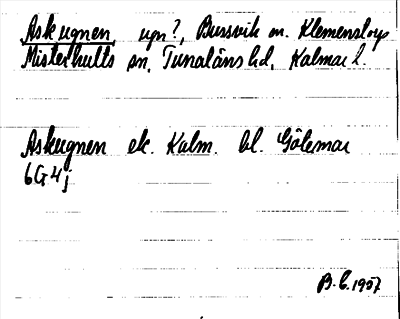 Askugnen, ugn?, Bussvik m. Klemenstorp
Misterhults sn, Tunaläns hd, Kalmar l.
Askugnen ek. Kalm. bl. Götemar
6G4j
B.C. 1957